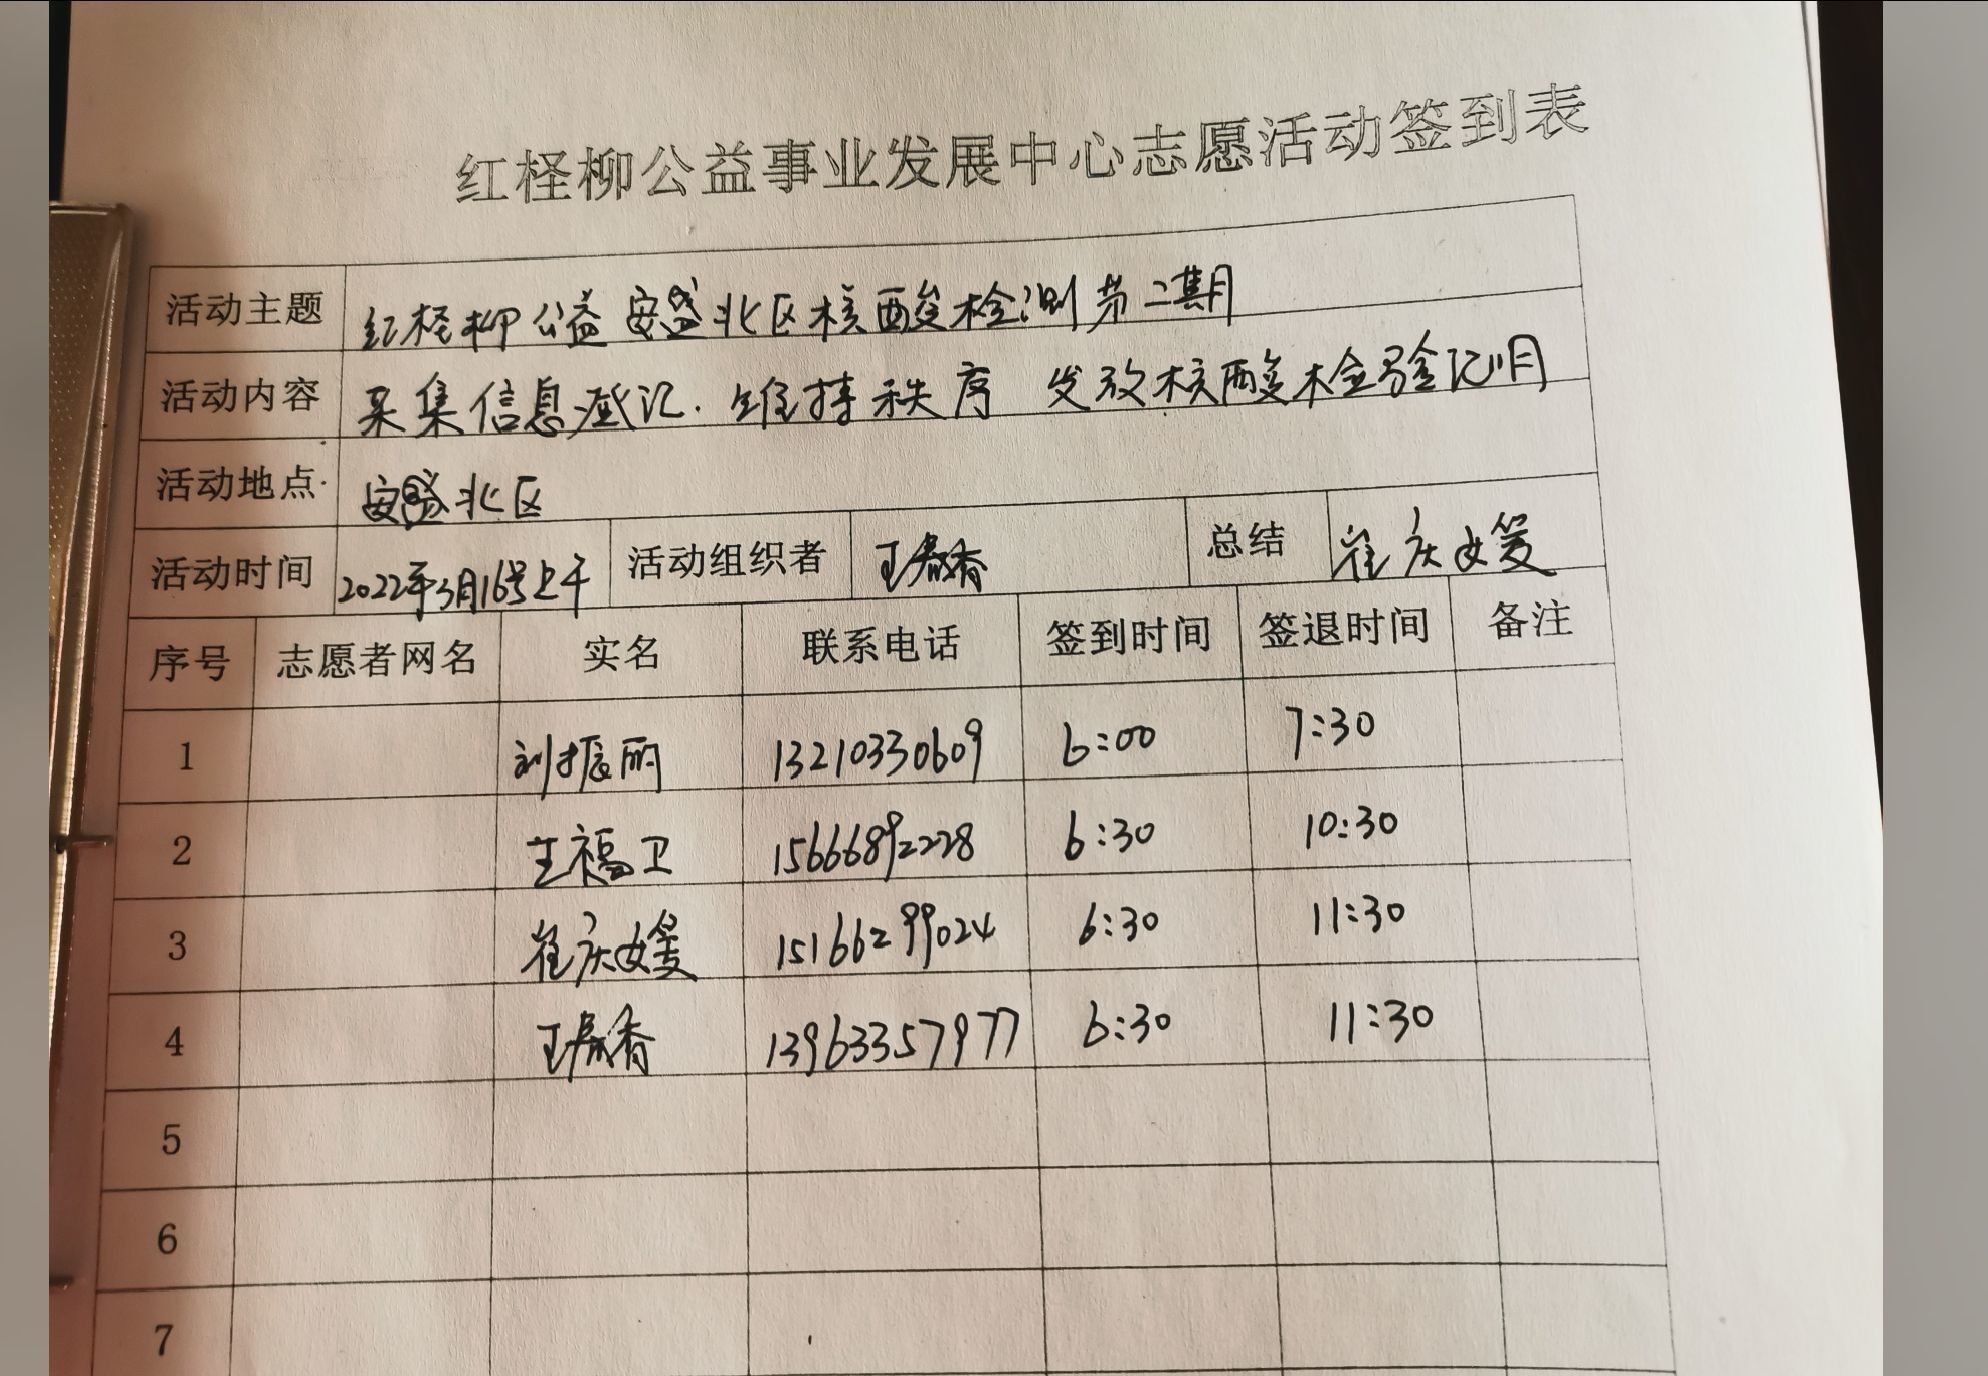 红柽柳公益事业发展中心志愿活动签到表
活动主题 红柽柳公益安盛北区核酸检测第二期
活动内容 采集信息登记.维持秩序 发放核酸检验证明
活动地点 安盛北区
活动时间 2022年3月16号上午 活动组织者 王春香 总结 崔庆媛
序号 志愿者网名 实名 联系电话 签到时间 签退时间 备注
1 刘振丽 13210330609 6:00 7:30
2 王福卫 15666892228 6:30 10:30
3 崔庆媛 15166299024 6:30 11:30
4 王春香 13963357977 6:30 11:30
5
6
7